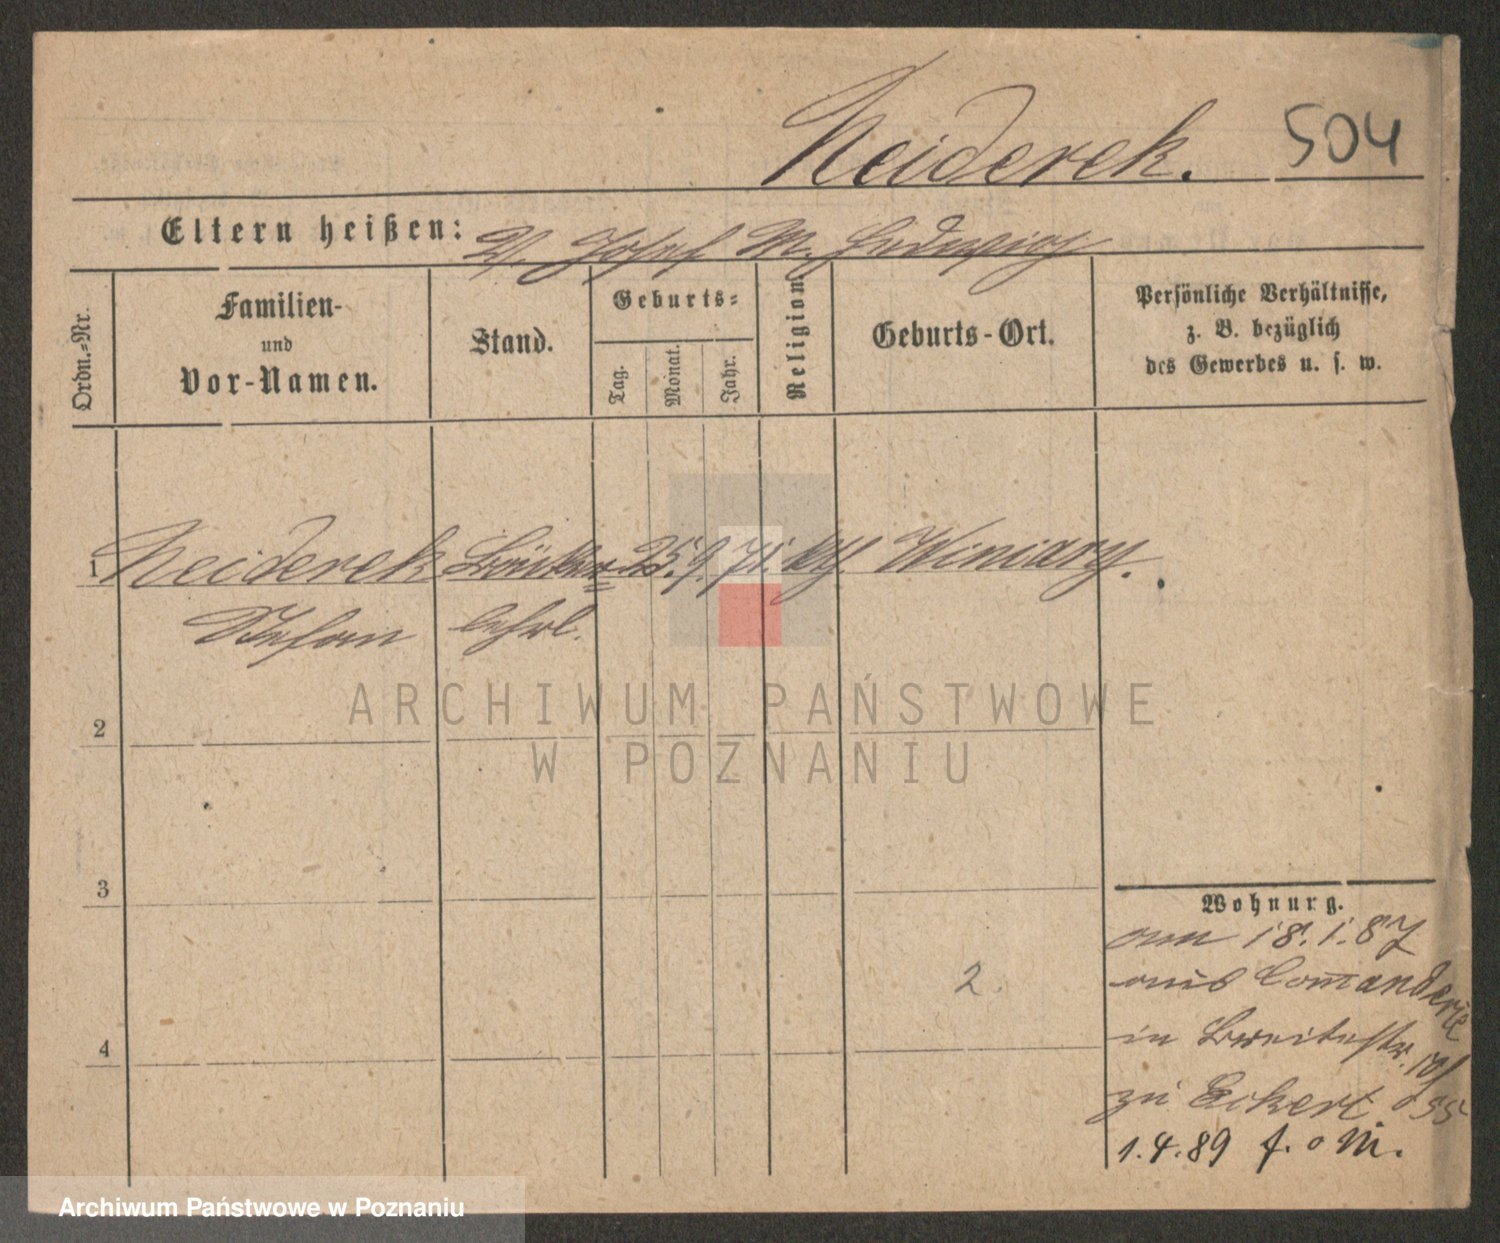 Neiderek.
504
Eltern heißen: V. Josef M. Hedwig
Ordn.-Nr.
Familien-
und
Vor-Namen.
Stand.
Geburts-
Tag.
Monat.
Jahr.
Religion.
Geburts-Ort.
Persönliche Verhältnisse,
z. B. bezüglich
des Gewerbes u. s. w.
1 Neiderek Böttcher= 25. 9. 71. kth. Winiary.
Stefan lehrl.
2
3
4
2.
Wohnung.
am 18.1.87
aus Comanderie
in Breitestr. 19/
zu Eckert
1.4.89 f. o M.
ARCHIWUM PAŃSTWOWE
W POZNANIU
Archiwum Państwowe w Poznaniu